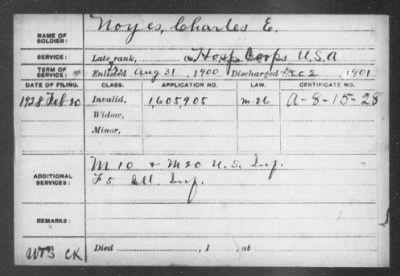 NAME OF SOLDIER: Noyes, Charles E.
SERVICE: Late rank, Co. Hosp Corps U.S.A
TERM OF SERVICE: Enlisted Aug 31, 1900 Discharged Dec 2, 1901
DATE OF FILING. CLASS. APPLICATION NO. LAW. CERTIFICATE NO.
1928 Feb 20 Invalid, 1,605,905 m-26 A-8-15-28
Widow,
Minor,
ADDITIONAL SERVICES: M 10 + M 20 U.S. Inf.
F 5 Ill Inf.
REMARKS:
WTB CK Died , 1 at